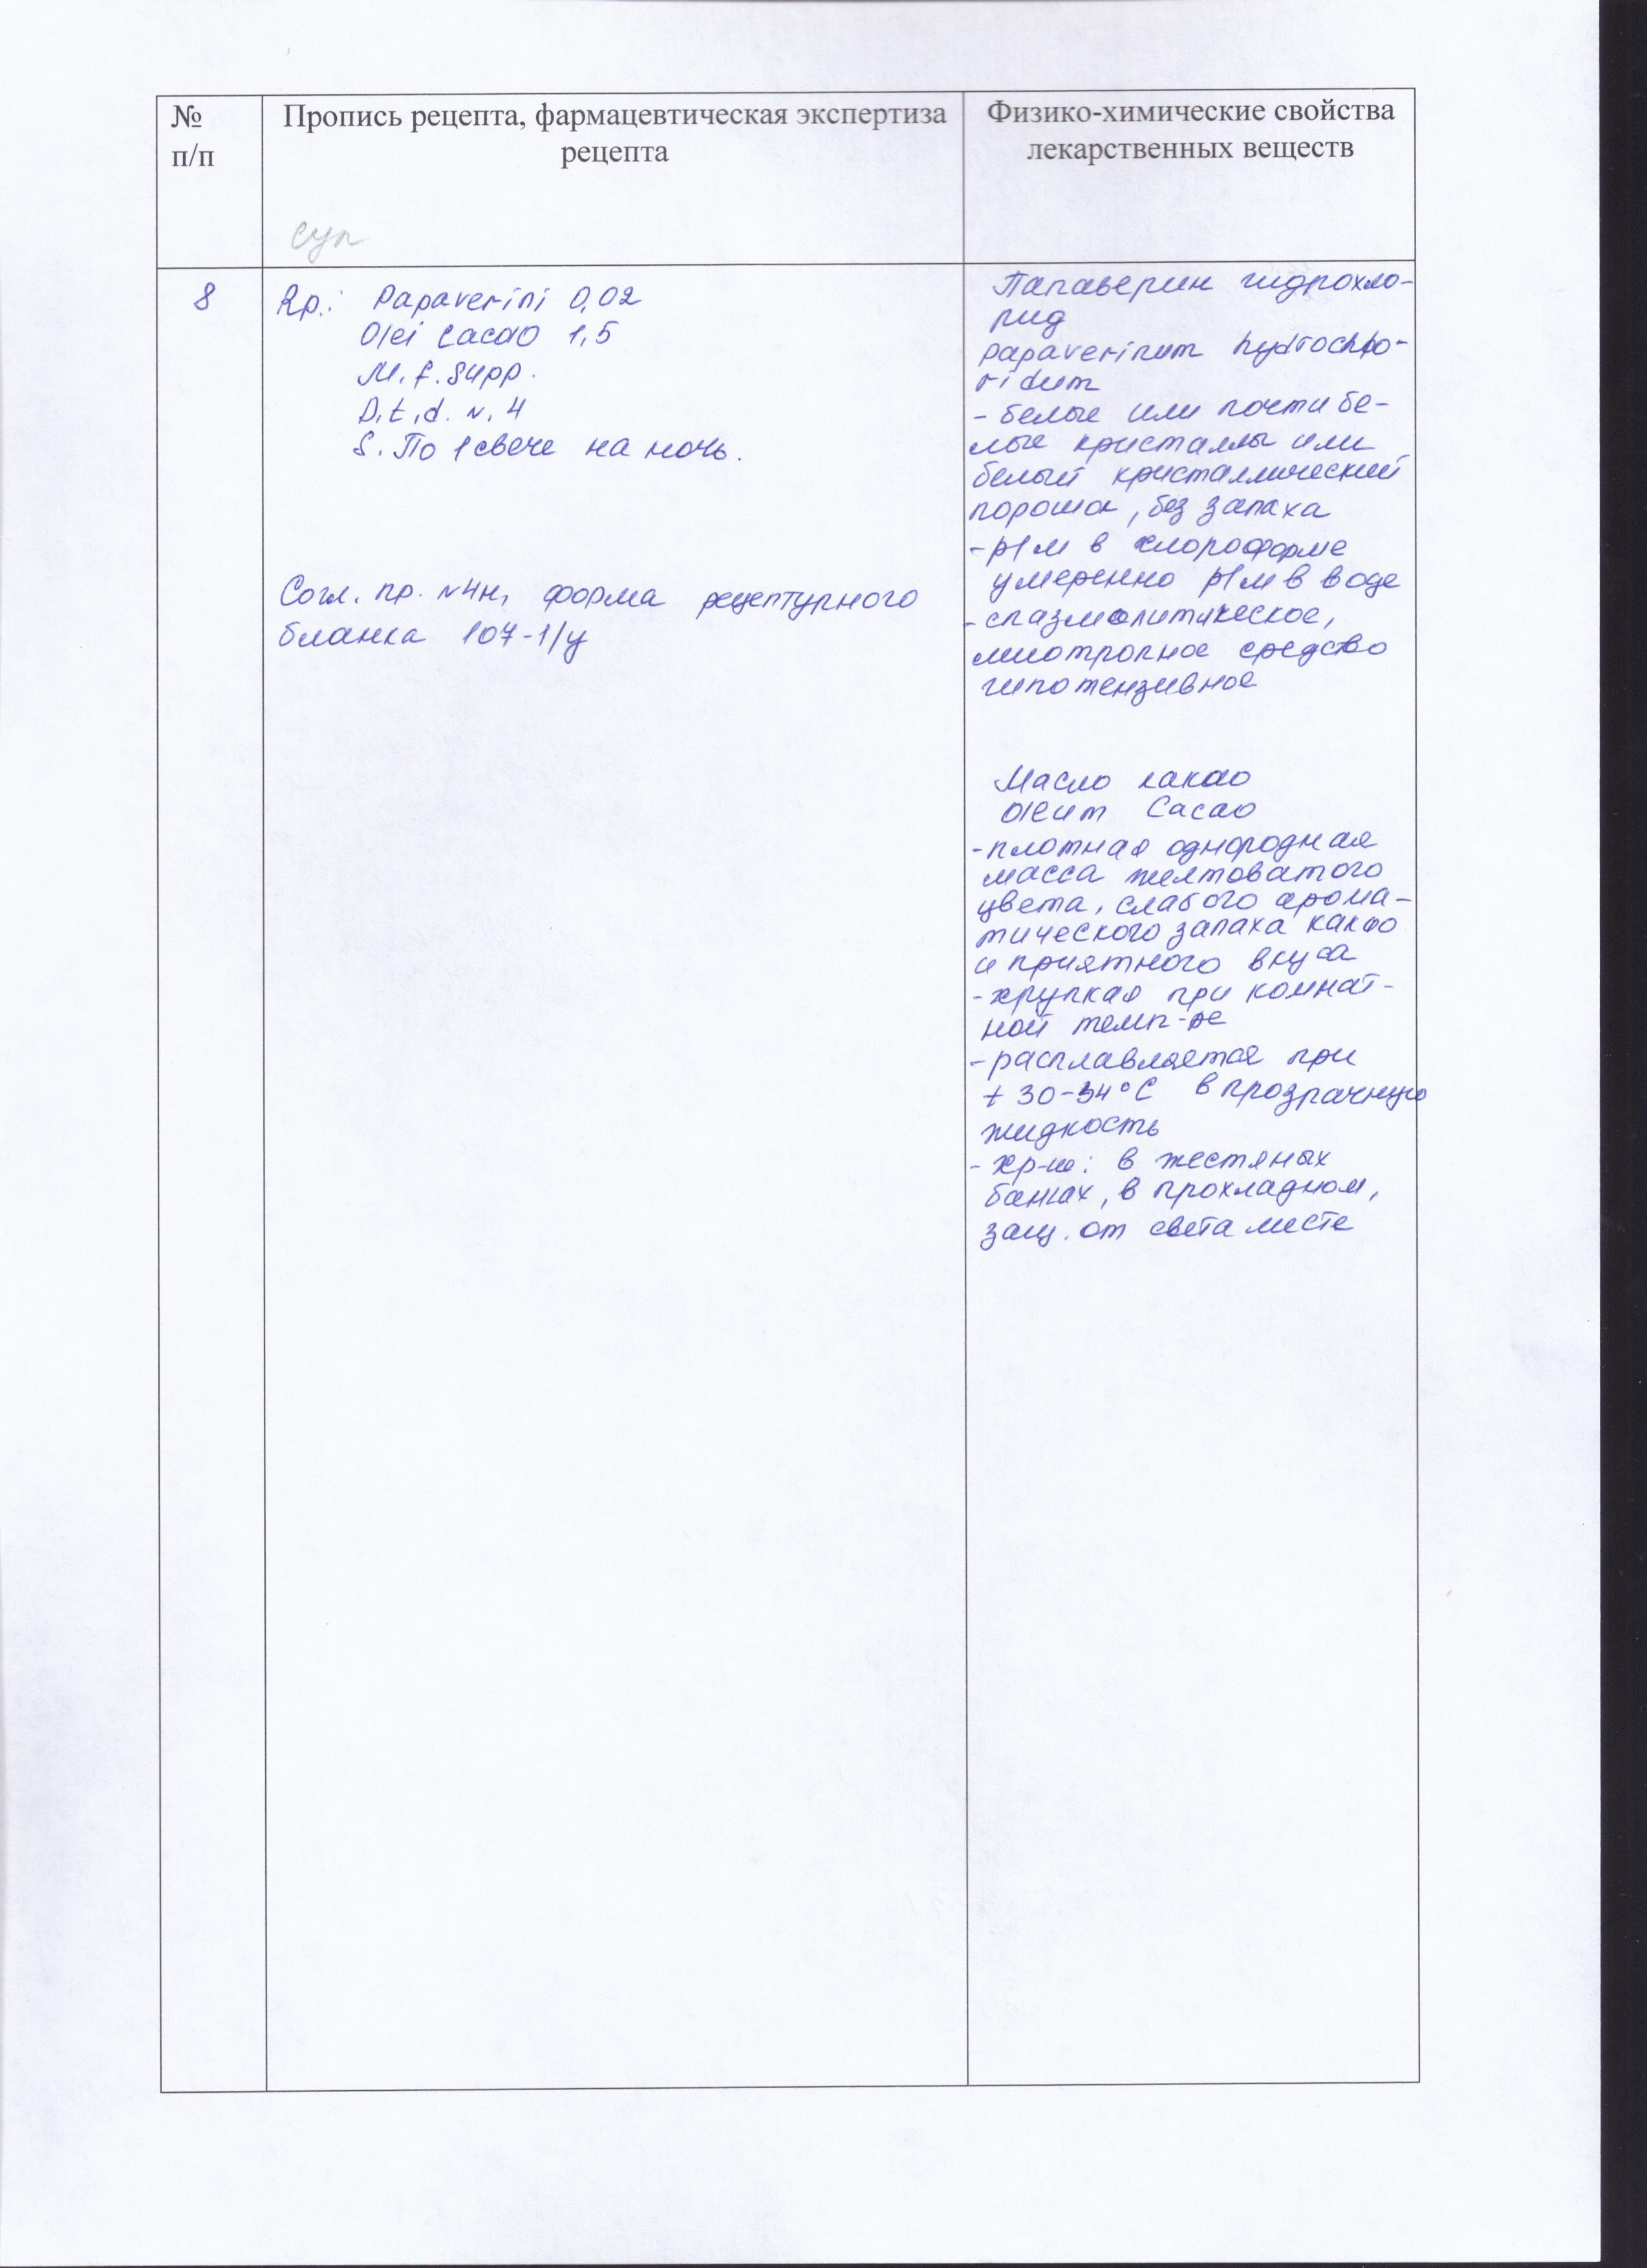 №
п/п
Пропись рецепта, фармацевтическая экспертиза
рецепта
Физико-химические свойства
лекарственных веществ
суп
8
Rp.: Papaverini 0,02
Olei Cacao 1,5
M. f. supp.
D. t. d. N. 4
S. По 1 свече на ночь.
Согл. пр. N4н, форма рецептурного
бланка 107-1/у
Папаверин гидрохло-
рид
Papaverinum hydrochlo-
ridum
- белые или почти бе-
лые кристаллы или
белый кристаллический
порошок, без запаха
- р/м в хлороформе
умеренно р/м в воде
- спазмолитическое,
миотропное средство
гипотензивное
Масло какао
Oleum Cacao
- плотная однородная
масса желтоватого
цвета, слабого арома-
тического запаха какао
и приятного вкуса
- хрупкая при комнат-
ной темп-ре
- расплавляется при
+ 30-34°С в прозрачную
жидкость
- хр-ие: в жестяных
банках, в прохладном,
защ. от света месте